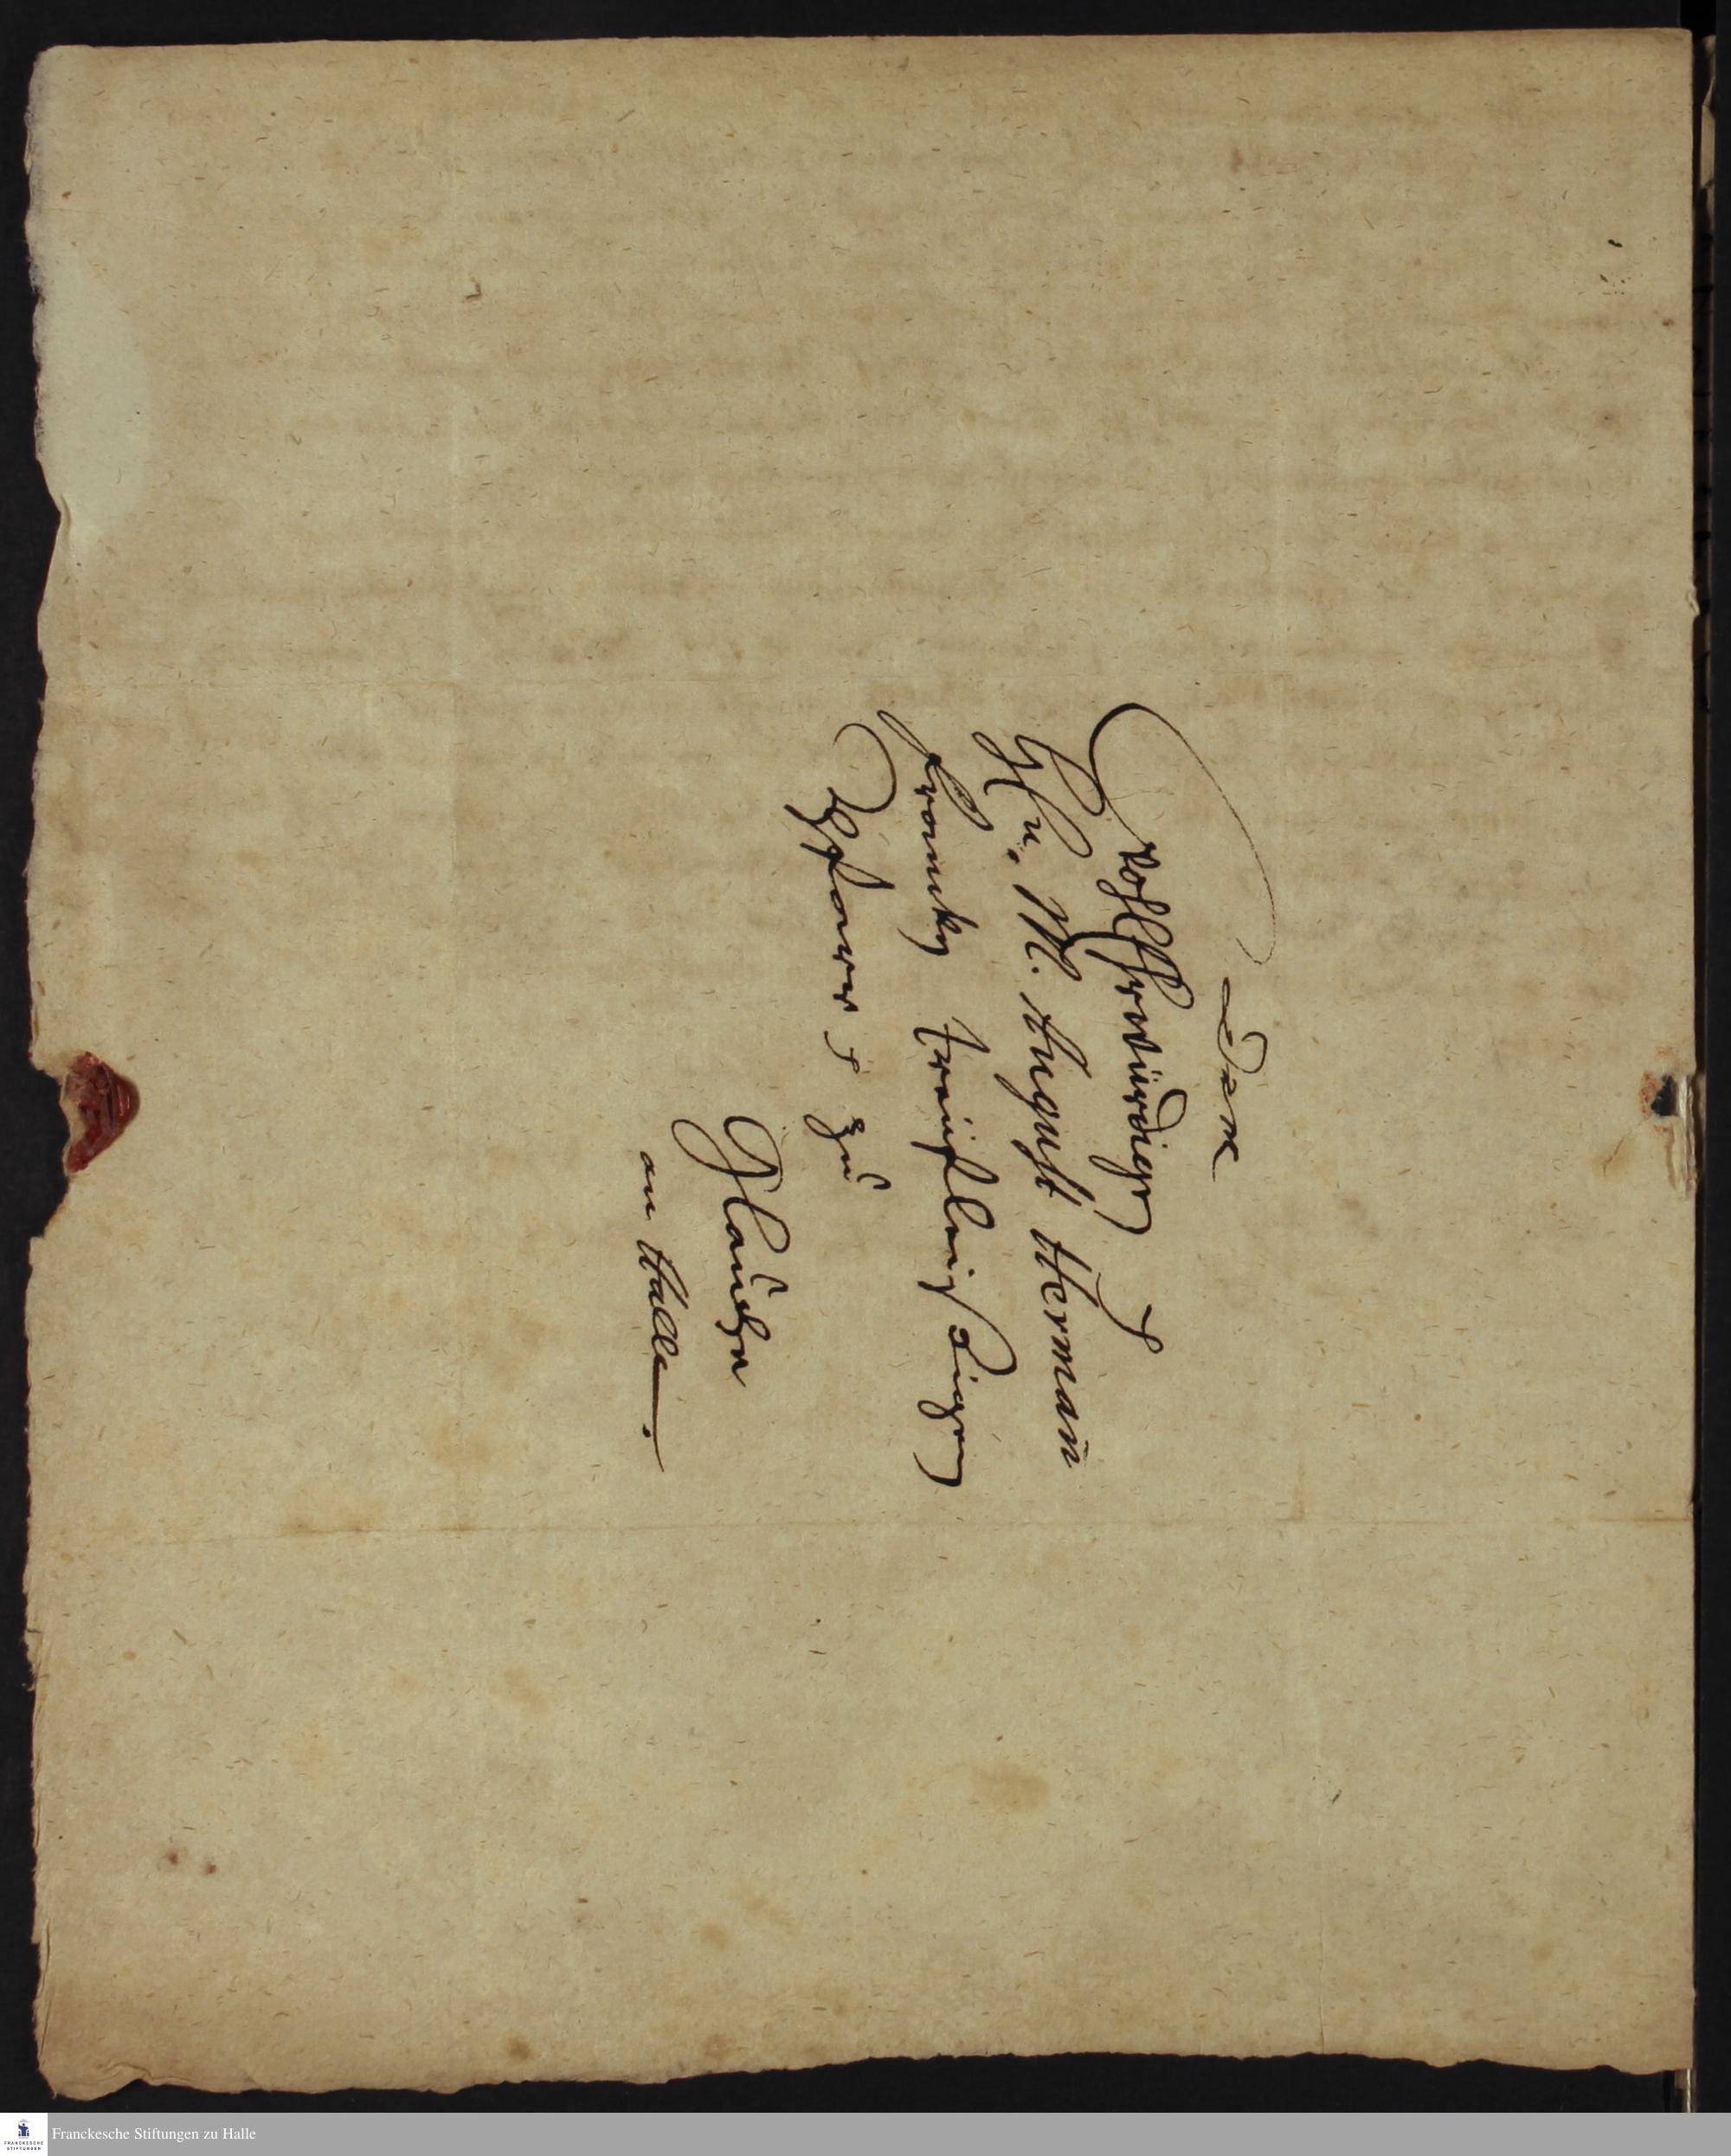 Dem
WohlEhrwürdigen
Hn. M. August Herman̄
Francken treufleißigen
Pfarrer zu
Glaucha
an Halle.
FRANCKESCHE
STIFTUNGEN
Franckesche Stiftungen zu Halle